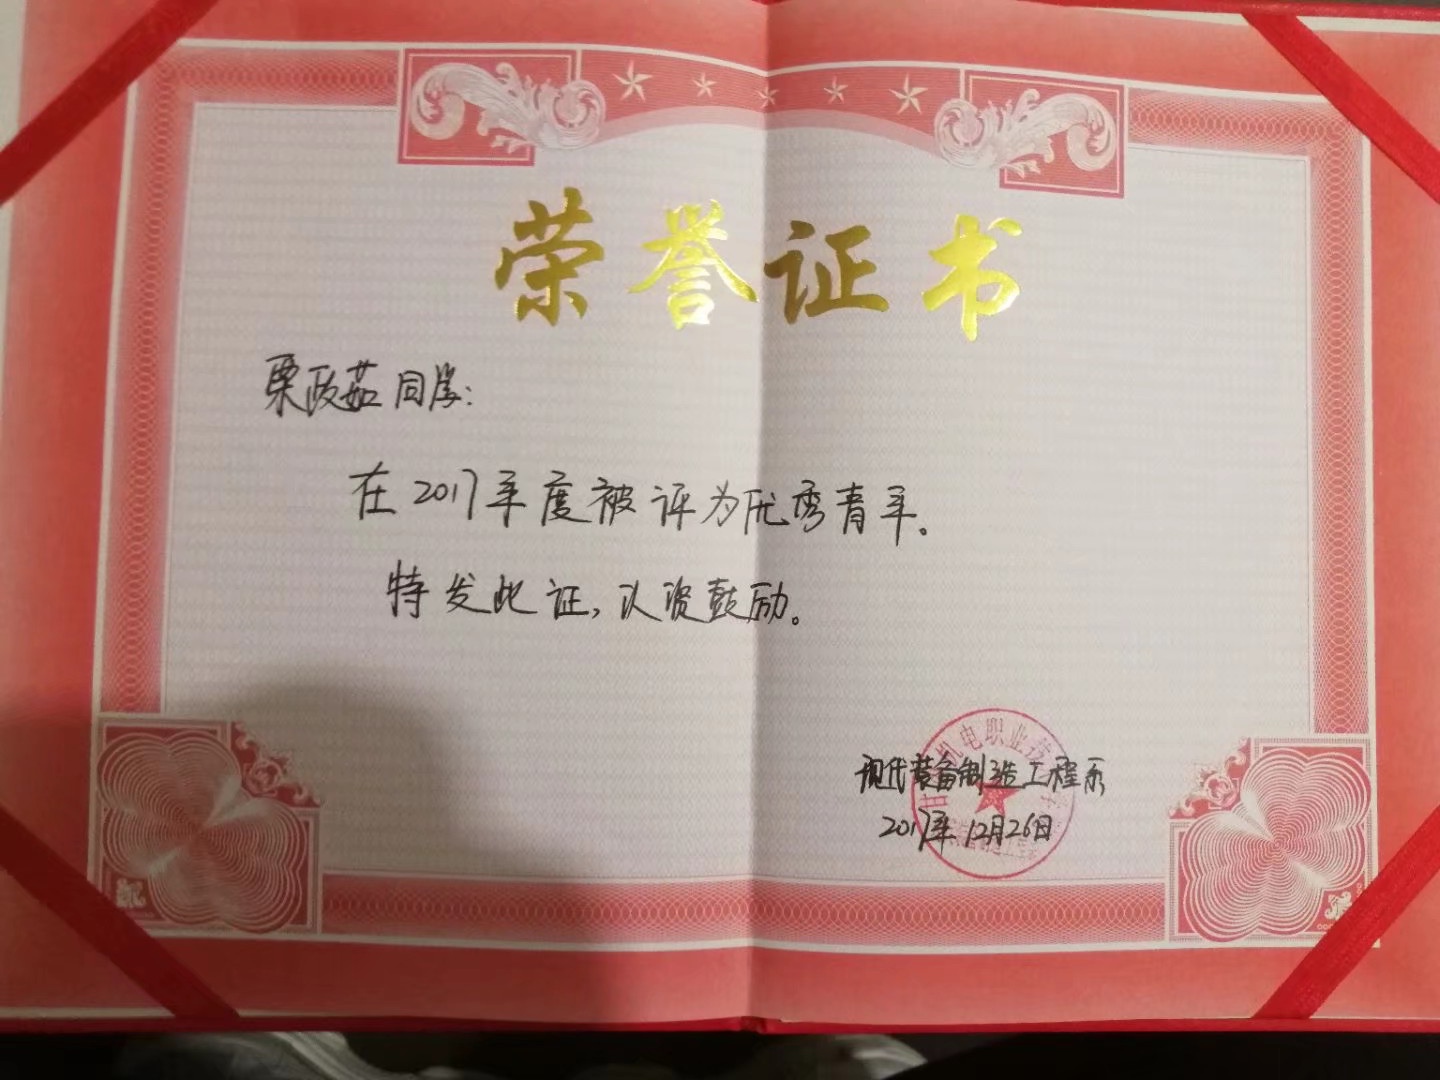 荣誉证书
栗政茹同学：
在2017年度被评为优秀青年。
特发此证，以资鼓励。
机电职业技
现代装备制造工程系
2017年12月26日